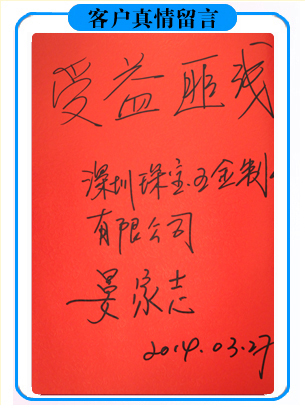 客户真情留言
受益匪浅
深圳珠宝五金制
有限公司
晏家志
2014.03.27